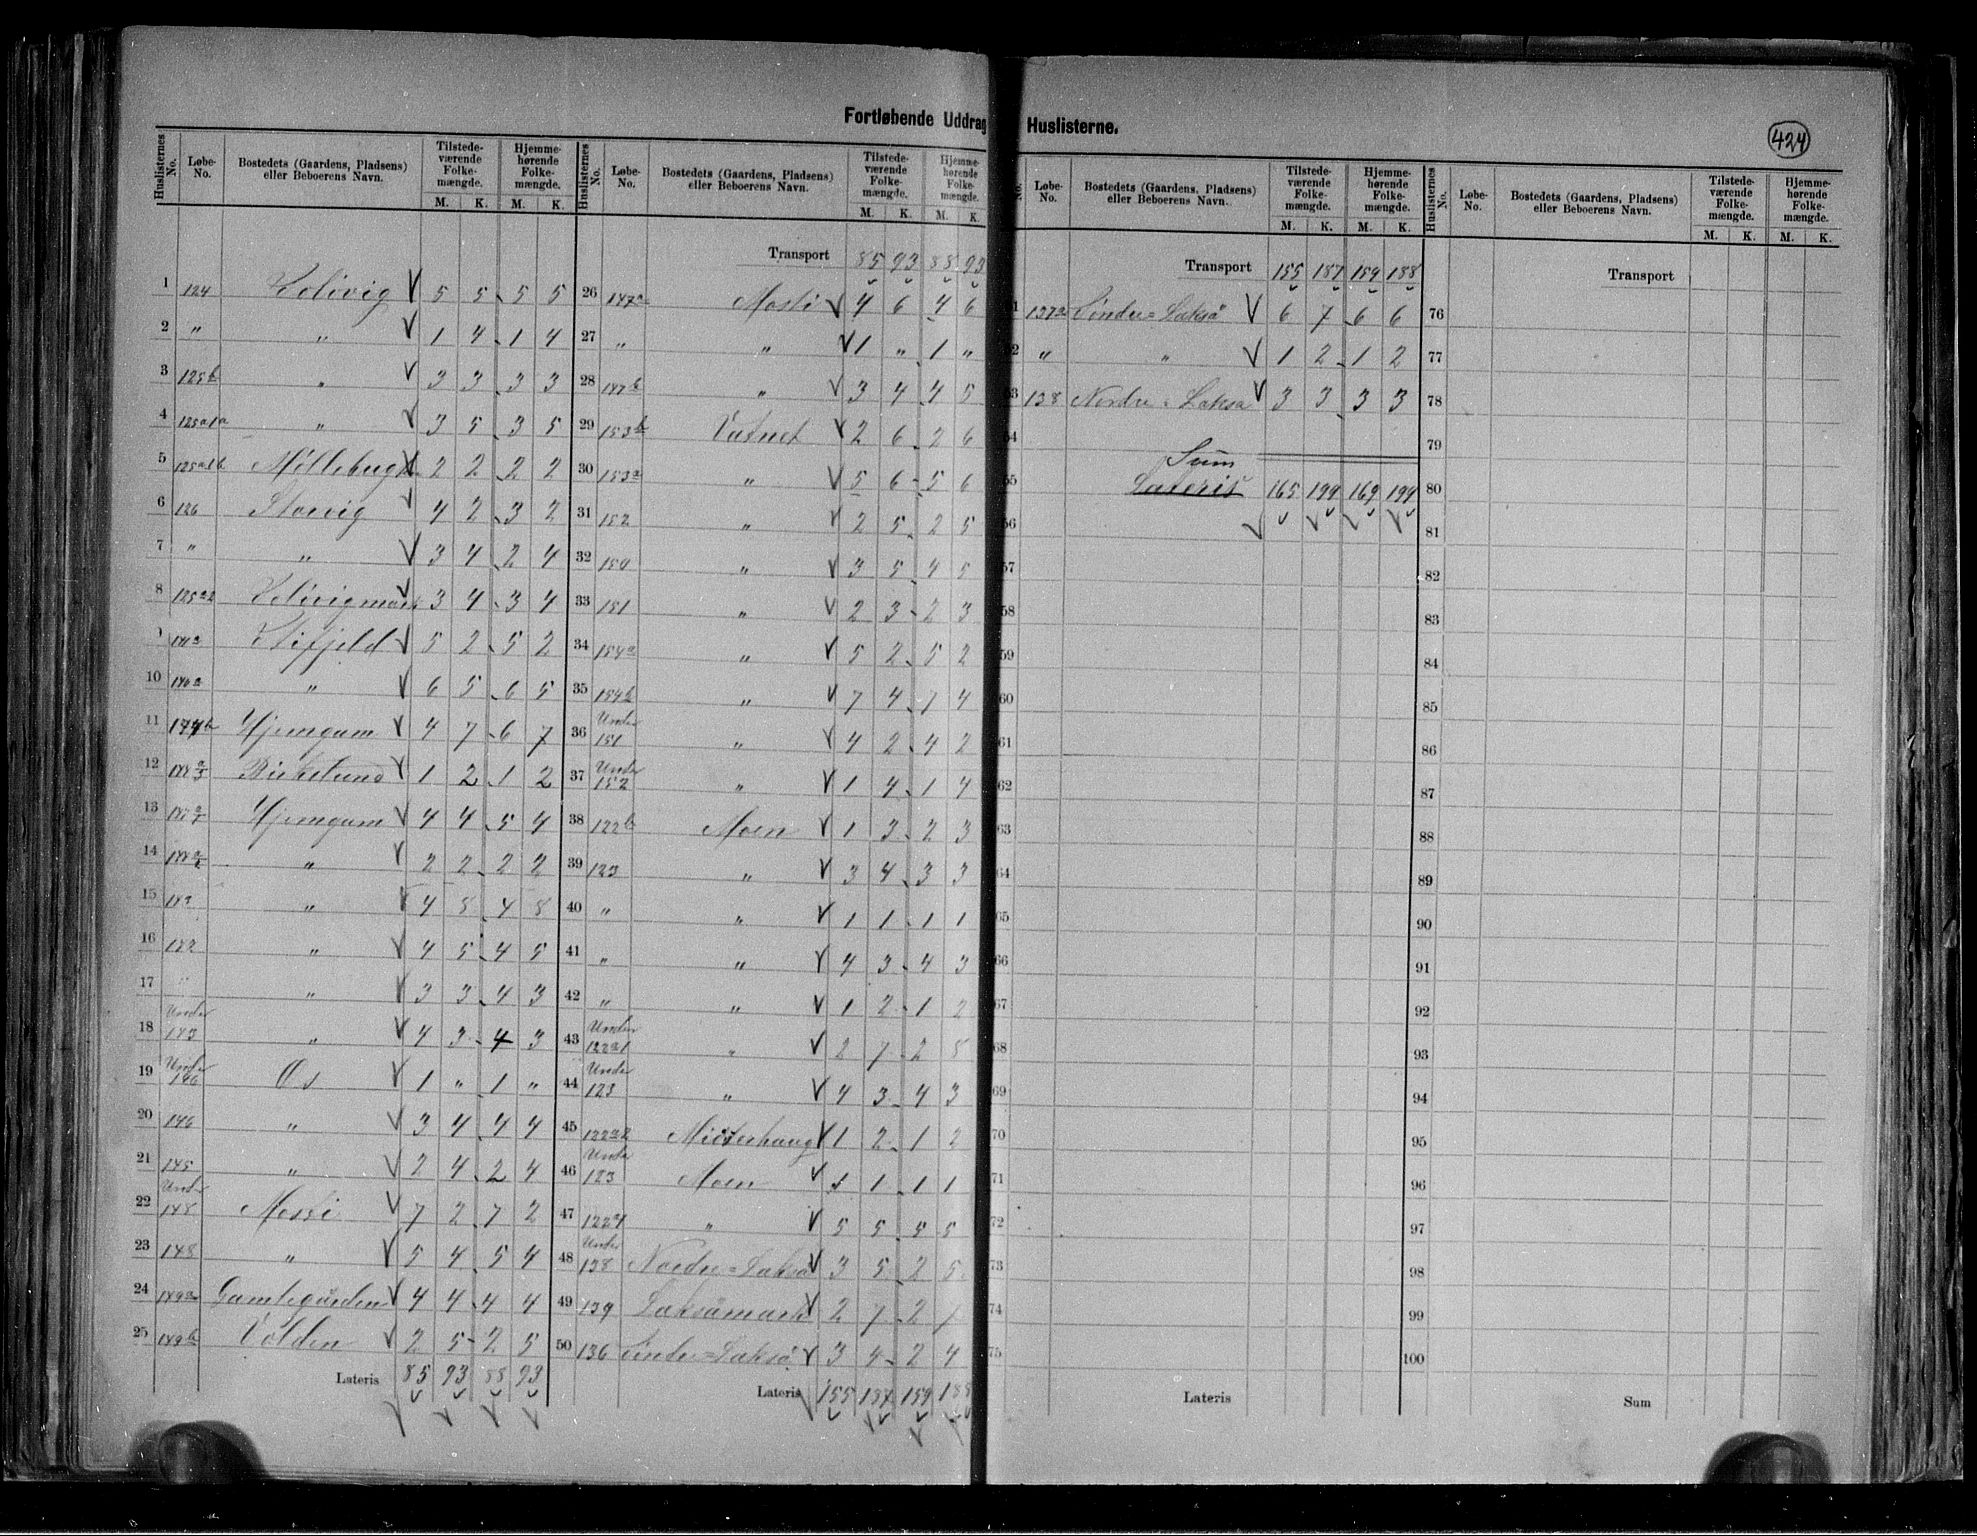 Fortløbende Uddrag Huslisterne.
424
Huslisternes No. Løbe-No. Bostedets (Gaardens, Pladsens) eller Beboerens Navn. Tilstedeværende Folkemængde. M. K. Hjemmehørende Folkemængde. M. K.
1 124 5 5 5 5
2 " " 1 4 1 4
3 125b " 3 3 3 3
4 125a1a " 3 5 3 5
5 125a1b 2 2 2 2
6 126 Storvig 4 2 3 2
7 " " 3 4 2 4
8 125a2 3 4 3 4
9 5 2 5 2
10 146a " 6 5 6 5
11 Hjemgam 4 7 6 7
12 Birkelund 1 2 1 2
13 Hjemgam 4 4 5 4
14 " 2 2 2 2
15 " 4 8 4 8
16 " 4 5 4 5
17 " 3 3 4 3
18 Under 143 " 4 3 4 3
19 Under 146 Os 1 " 1 "
20 146 " 3 4 4 4
21 145 " 2 4 2 4
22 Under 148 Mosti 7 2 7 2
23 148 " 5 4 5 4
24 149a Gamlegården 4 4 4 4
25 149b Volden 2 5 2 5
Lateris 85 93 88 93
Huslisternes No. Løbe-No. Bostedets (Gaardens, Pladsens) eller Beboerens Navn. Tilstedeværende Folkemængde. M. K. Hjemmehørende Folkemængde. M. K.
Transport 85 93 88 93
26 147a Mosti 4 6 4 6
27 " " 1 " 1 "
28 147b " 3 4 4 5
29 153b Vatnet 2 6 2 6
30 153a " 5 6 5 6
31 152 " 2 5 2 5
32 150 " 3 5 4 5
33 151 " 2 3 2 3
34 154a " 5 2 5 2
35 154b " 7 4 7 4
36 Under 151 " 4 2 4 2
37 Under 152 " 1 4 1 4
38 122b Moen 1 3 2 3
39 123 " 3 4 3 3
40 " " 1 1 1 1
41 " " 4 3 4 3
42 " " 1 2 1 2
43 Under 122a1 " 2 7 2 8
44 Under 123 " 4 3 4 3
45 122a2 1 2 1 2
46 Under 123 Moen 1 1 1 1
47 " 5 5 5 5
48 Under 138 Nordre=Lakså 3 5 2 5
49 139 Laksåmark 2 7 2 7
50 136 Indre=Lakså 3 4 2 4
Lateris 155 187 159 188
No. Løbe-No. Bostedets (Gaardens, Pladsens) eller Beboerens Navn. Tilstedeværende Folkemængde. M. K. Hjemmehørende Folkemængde. M. K.
Transport 155 187 159 188
1 137a Indre=Lakså 6 7 6 6
2 " " 1 2 1 2
3 138 Nordre=Lakså 3 3 3 3
54
Sum
55 Lateris 165 199 169 199
56
57
58
59
60
61
62
63
64
65
66
67
68
69
70
71
72
73
74
75
Lateris
Huslisternes No. Løbe-No. Bostedets (Gaardens, Pladsens) eller Beboerens Navn. Tilstedeværende Folkemængde. M. K. Hjemmehørende Folkemængde. M. K.
Transport
76
77
78
79
80
81
82
83
84
85
86
87
88
89
90
91
92
93
94
95
96
97
98
99
100
Sum